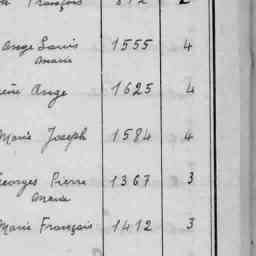 François 872 2
Ange Louis 1555 4
Marie
Ange 1625 4
Marie Joseph 1584 4
Georges Pierre 1367 3
Marie
Marie François 1412 3